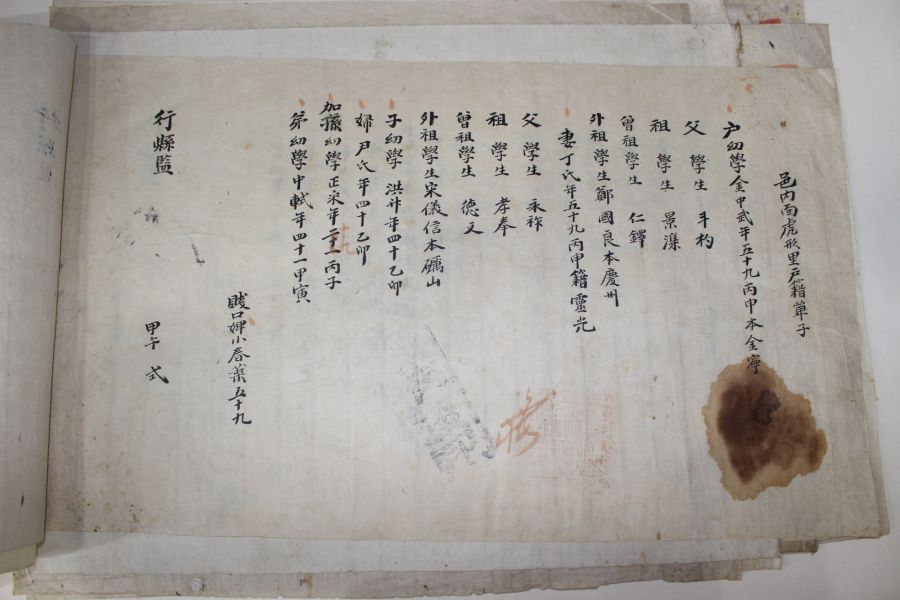 邑內面虎形里戶籍單子
戶幼學金中武年五十九丙申本金寧
父 學生 斗杓
祖 學生 景
曾祖學生 仁鐸
外祖學生鄭國良本慶州
妻丁氏年五十九丙申籍靈光
父 學生 永祚
祖 學生 孝奉
曾祖學生 德文
外祖學生宋儀信本礪山
子幼學 洪 年四十乙卯
婦尹氏年四十乙卯
加孫幼學正采年二十一丙子
弟幼學中軾年四十一甲寅
賤口婢小春葉五十九
甲午 式
行縣監